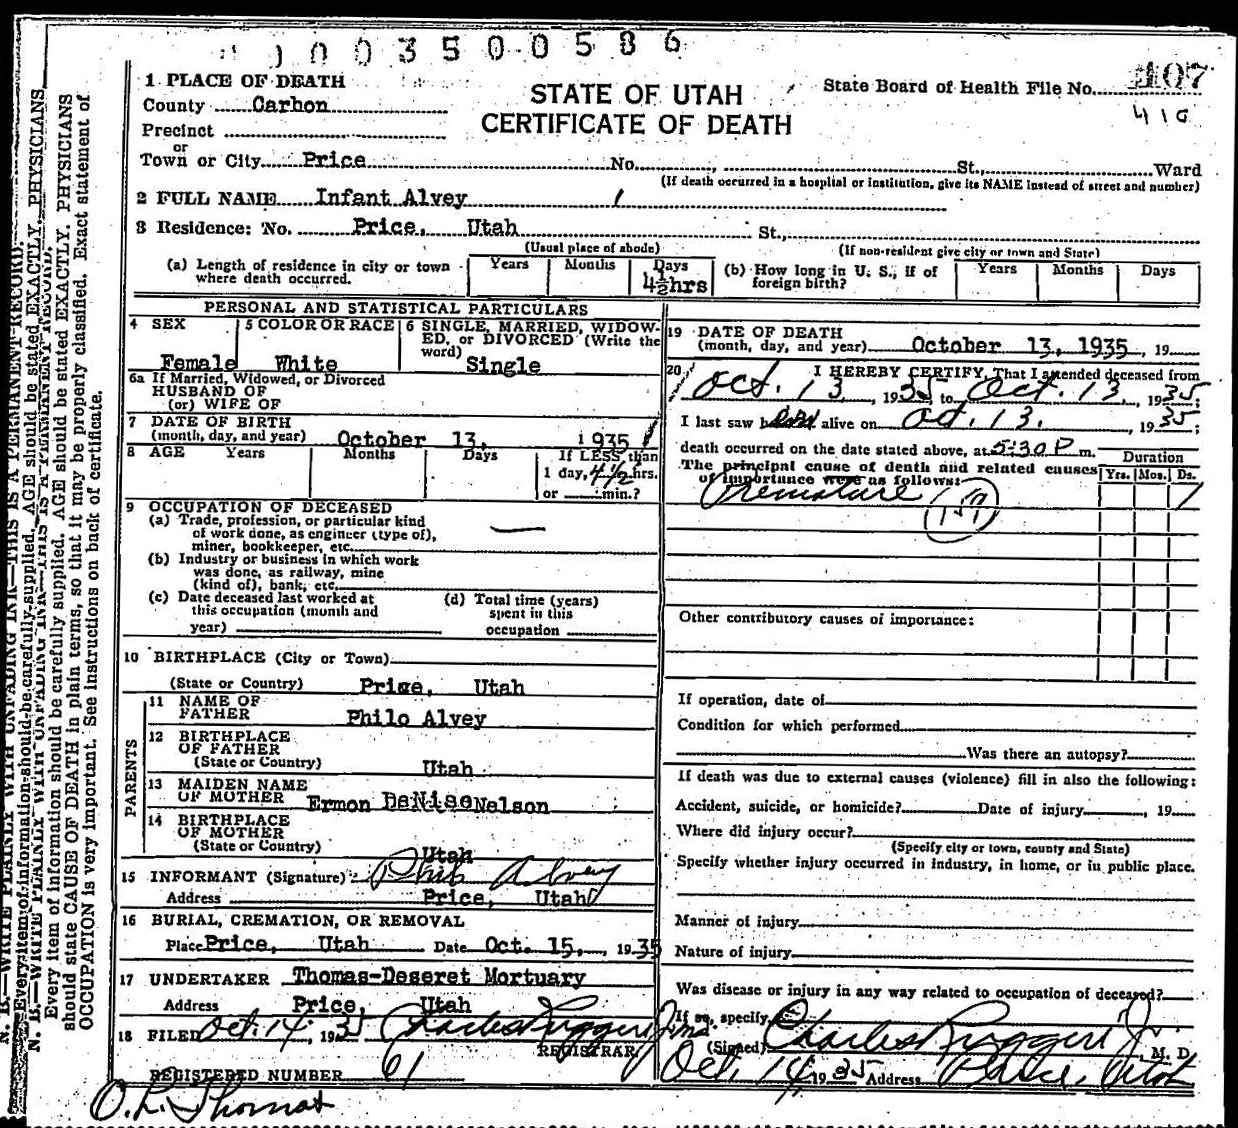 1003500586
1 PLACE OF DEATH
County Carbon
Precinct
or
Town or City Price No. , St., Ward
STATE OF UTAH
CERTIFICATE OF DEATH
State Board of Health File No. 107
410
(If death occurred in a hospital or institution, give its NAME instead of street and number)
2 FULL NAME Infant Alvey
3 Residence: No. Price, Utah St.,
(Usual place of abode) (If non-resident give city or town and State)
(a) Length of residence in city or town where death occurred. Years Months Days 4½hrs
(b) How long in U. S., if of foreign birth? Years Months Days
PERSONAL AND STATISTICAL PARTICULARS
4 SEX Female
5 COLOR OR RACE White
6 SINGLE, MARRIED, WIDOWED, or DIVORCED (Write the word) Single
6a If Married, Widowed, or Divorced
HUSBAND OF
(or) WIFE OF
7 DATE OF BIRTH
(month, day, and year) October 13, 1935
8 AGE Years Months Days If LESS than
1 day, 4 1/2 hrs.
or min.?
9 OCCUPATION OF DECEASED
(a) Trade, profession, or particular kind
of work done, as engineer (type of),
miner, bookkeeper, etc.
(b) Industry or business in which work
was done, as railway, mine
(kind of), bank, etc.
(c) Date deceased last worked at
this occupation (month and
year)
(d) Total time (years)
spent in this
occupation
10 BIRTHPLACE (City or Town)
(State or Country) Price, Utah
PARENTS
11 NAME OF
FATHER Philo Alvey
12 BIRTHPLACE
OF FATHER
(State or Country) Utah
13 MAIDEN NAME
OF MOTHER Ermon DeNise Nelson
14 BIRTHPLACE
OF MOTHER
(State or Country) Utah
15 INFORMANT (Signature) Philo Alvey
Address Price, Utah
16 BURIAL, CREMATION, OR REMOVAL
Place Price, Utah Date Oct. 15, 1935
17 UNDERTAKER Thomas-Deseret Mortuary
Address Price, Utah
18 FILED Oct. 14, 1935 Charles Ruggeri Jr. M.D.
REGISTRAR
REGISTERED NUMBER 61
O. L. Thomas
19 DATE OF DEATH
(month, day, and year) October 13, 1935, 19
20 I HEREBY CERTIFY, That I attended deceased from
Oct. 13, 1935, to Oct. 13, 1935;
I last saw alive on Oct. 13., 1935;
death occurred on the date stated above, at 5:30 P m.
The principal cause of death and related causes
of importance were as follows:
Duration
Yrs. Mos. Ds.
Premature 159 1
Other contributory causes of importance:
If operation, date of
Condition for which performed
Was there an autopsy?
If death was due to external causes (violence) fill in also the following:
Accident, suicide, or homicide? Date of injury , 19
Where did injury occur?
(Specify city or town, county and State)
Specify whether injury occurred in industry, in home, or in public place.
Manner of injury
Nature of injury
Was disease or injury in any way related to occupation of deceased?
If so, specify
(Signed) Charles Ruggeri Jr. M. D.
Oct. 14 1935 Address Price, Utah
N. B.—WRITE PLAINLY WITH UNFADING INK—THIS IS A PERMANENT RECORD.
Every item of information should be carefully supplied. AGE should be stated EXACTLY. PHYSICIANS
N. B.—WRITE PLAINLY WITH UNFADING INK—THIS IS A PERMANENT RECORD.
Every item of information should be carefully supplied. AGE should be stated EXACTLY. PHYSICIANS
should state CAUSE OF DEATH in plain terms, so that it may be properly classified. Exact statement of
OCCUPATION is very important. See instructions on back of certificate.